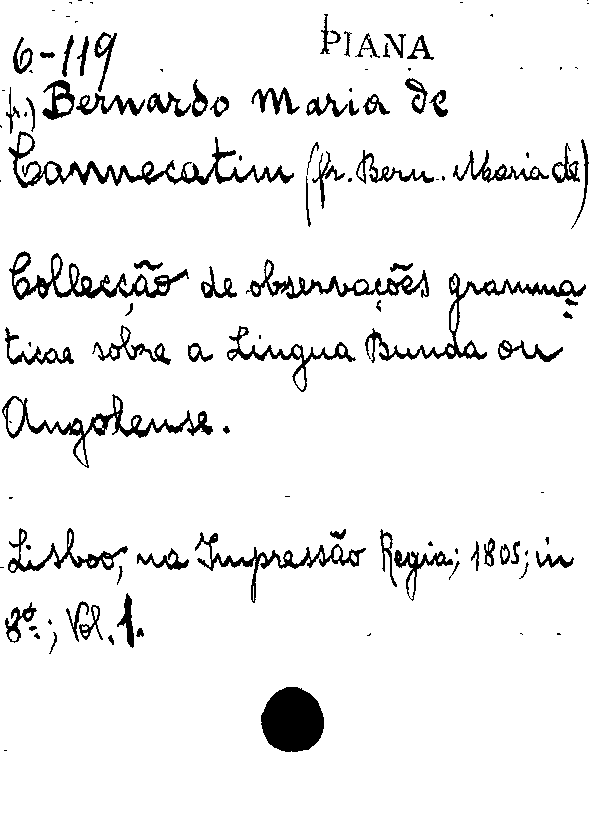 6-119 PIANA
fr.) Bernardo Maria de
Cannecatim (fr. Bern. Maria de)
Collecção de observações gramma=
ticae sobre a Lingua Bunda ou
Angolense.
Lisboa, na Impressão Regia; 1805; in
8º; Vol. 1.